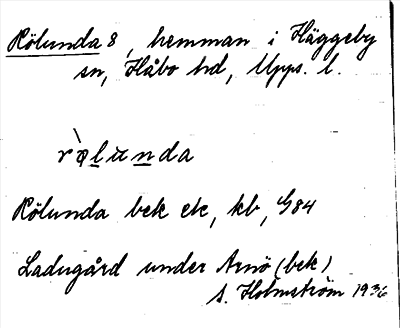 Rölunda 8, hemman i Häggeby
sn, Håbo hd, Upps. l.
Rölunda bek etc, kb, 84
Ladugård under Arnö (bek)
S. Holmström 1936